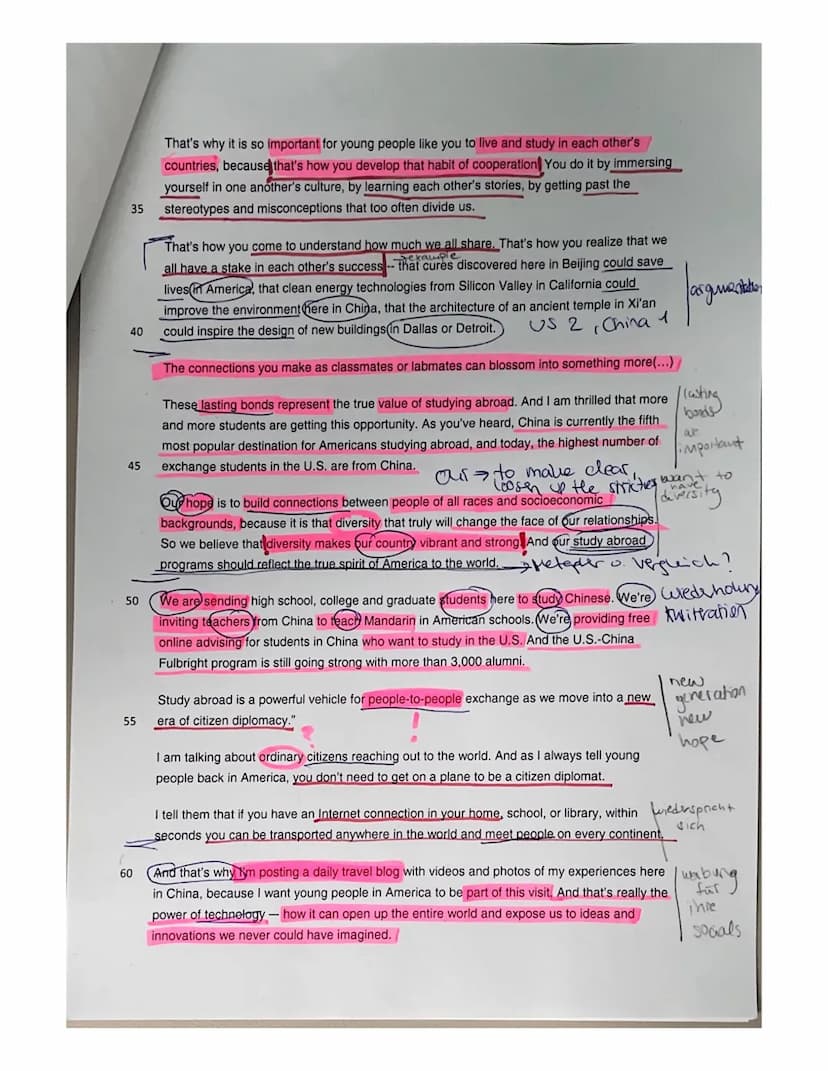 That's why it is so important for young people like you to live and study in each other's
countries, because that's how you develop that habit of cooperation. You do it by immersing
yourself in one another's culture, by learning each other's stories, by getting past the
35 stereotypes and misconceptions that too often divide us.
That's how you come to understand how much we all share. That's how you realize that we
example
all have a stake in each other's success – that cures discovered here in Beijing could save
lives in America, that clean energy technologies from Silicon Valley in California could
argumentation
improve the environment here in China, that the architecture of an ancient temple in Xi'an
40 could inspire the design of new buildings in Dallas or Detroit.
US 2, China 1
The connections you make as classmates or labmates can blossom into something more(...)
These lasting bonds represent the true value of studying abroad. And I am thrilled that more
and more students are getting this opportunity. As you've heard, China is currently the fifth
most popular destination for Americans studying abroad, and today, the highest number of
45 exchange students in the U.S. are from China.
lasting
bonds
important
our → to make clear,
loosen up the
want to
have
diversity
Our hope is to build connections between people of all races and socioeconomic
backgrounds, because it is that diversity that truly will change the face of our relationships.
So we believe that diversity makes our country vibrant and strong. And our study abroad
programs should reflect the true spirit of America to the world.
→ Metapher o. Vergleich?
50 We are sending high school, college and graduate students here to study Chinese. We're
inviting teachers from China to teach Mandarin in American schools. We're providing free
online advising for students in China who want to study in the U.S. And the U.S.-China
Fulbright program is still going strong with more than 3,000 alumni.
Wiederholung
Study abroad is a powerful vehicle for people-to-people exchange as we move into a new
55 era of citizen diplomacy."
new
generation
new
hope
I am talking about ordinary citizens reaching out to the world. And as I always tell young
people back in America, you don't need to get on a plane to be a citizen diplomat.
I tell them that if you have an Internet connection in your home, school, or library, within
seconds you can be transported anywhere in the world and meet people on every continent.
wiederspricht
sich
60 And that's why I'm posting a daily travel blog with videos and photos of my experiences here
in China, because I want young people in America to be part of this visit. And that's really the
power of technology — how it can open up the entire world and expose us to ideas and
innovations we never could have imagined.
werbung
für
ihre
socials